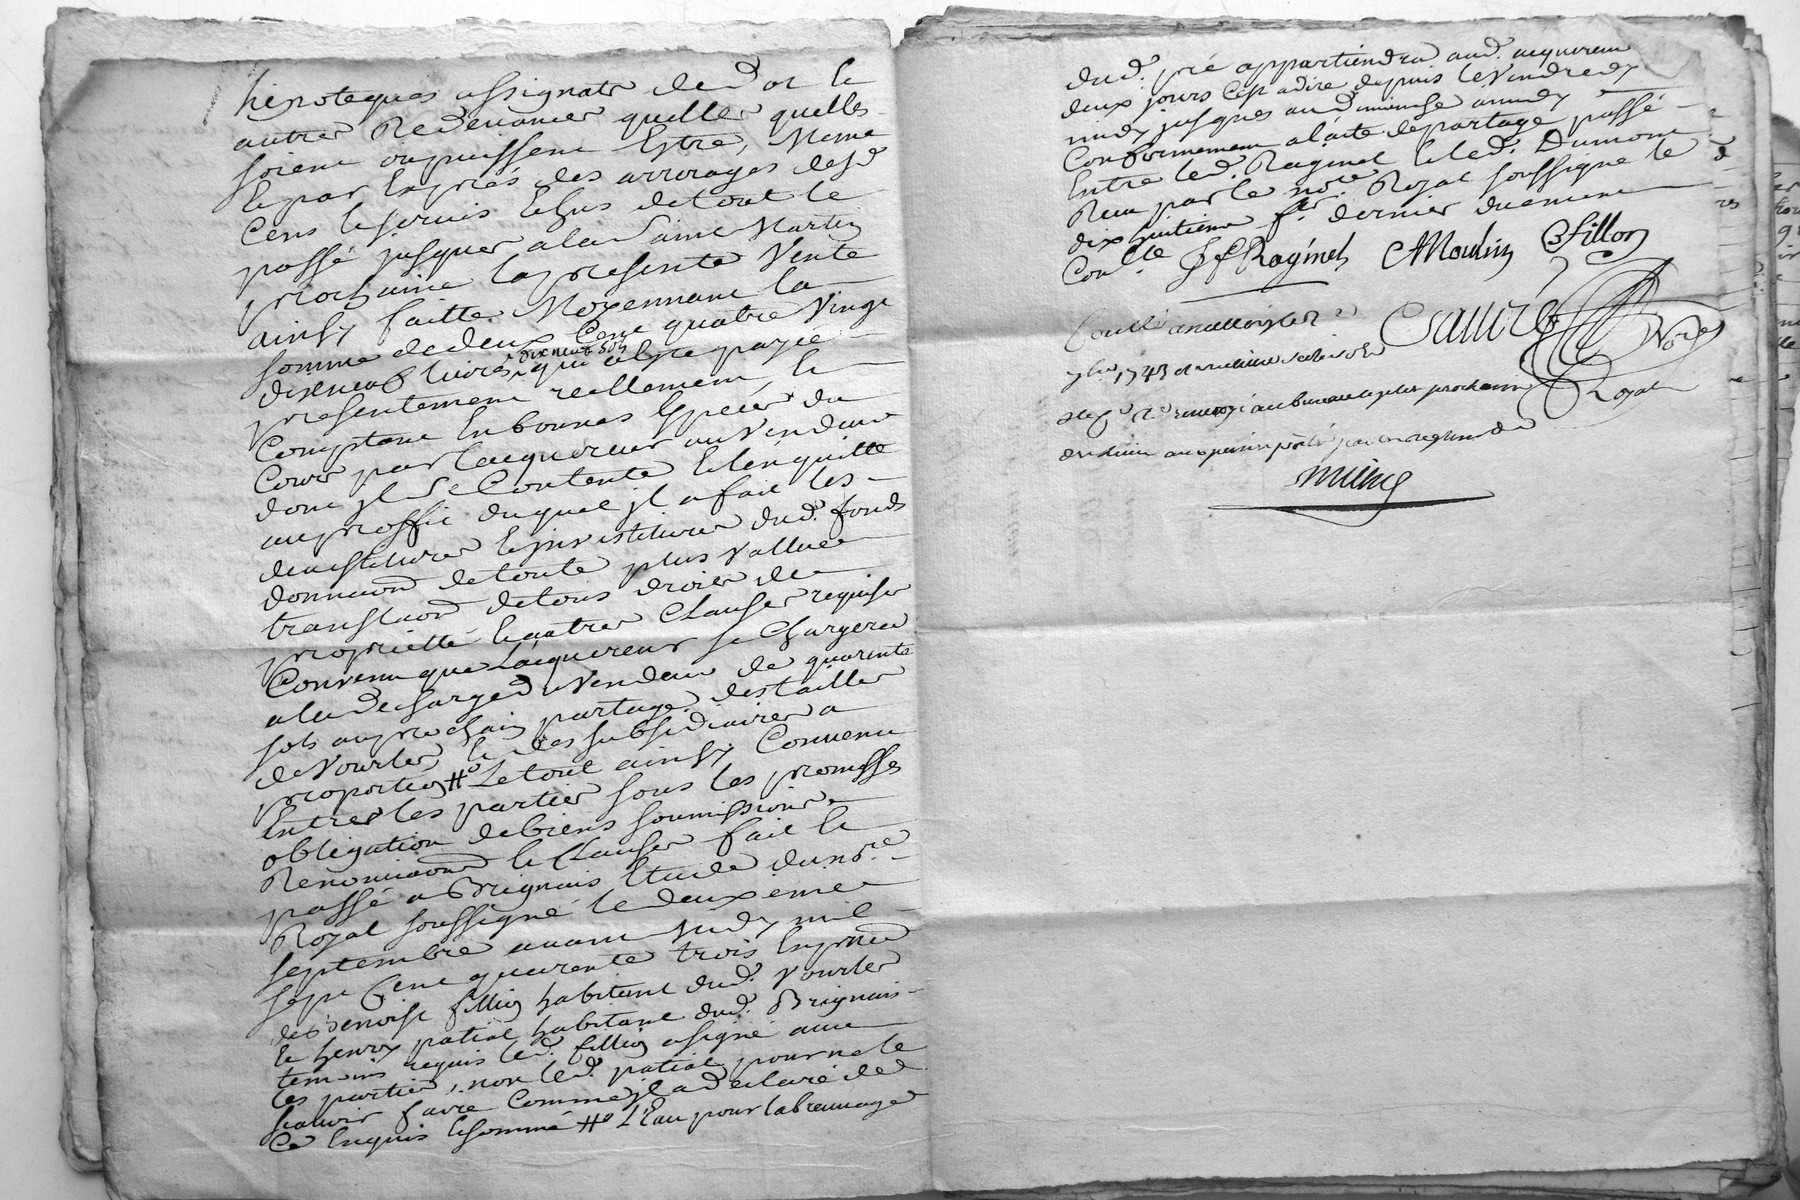 hipoteques assignats de d ot et
autres Redevances quelles quelles
soient ou puissent Estre, Meme
Et par Exprés des arrerages desd
Cens et servis Echus de tout le
passé jusques a la Saint Martin
prochaine la presente Vente
ainsy faitte Moyennant la
somme de deux Cent quatre Vingt
dixneuf livres dixneuf sols qui a Esté payée
presentement reellement et
Comptant En bonnes Especes du
Cours par l'acquereur au Vendeur
dont il se Contente Et l'en quitte
au proffit duquel il a fait les
devestitures Et investitures dud. fonds
donnaon de toute plus Vallue
translaon de tous droits de
proprietté Et autres Clauses requises
Convenu que L'acquereur se Chargera
a la decharge du Vendeur de quarente
sols au prochain partage des tailles
de Vourles, Et des subsidiaires a
proportion # Le tout ainsy Convenu
Entre les parties sous les promesses
obligation de biens soumissions
Renonciaons et Clauses fait Et
passé a Brignais Etude du no.re
Royal soussigné le deuxeme
septembre avant midy mil
sept Cent quarente trois En pnce
de Benoist fillion habitant dud. Vourles
Et henry patial habitant dud. Brignais
temoins requis led. fillion a signé avec
les parties, non led. patial pour ne le
scavoir faire Comme il a declaré de
Ce Enquis Et sommé # L'Eau pour l'abreuvage
dud. pré appartiendra aud. acquereur
deux jours C'est a dire depuis le Vendredy
midy jusques au dimanche a midy
Conformement a l'acte de partage passé
Entre led. Raginel Et led. Dumont
Reçu par le no.re Royal soussigné le
dix huitieme f.er dernier duement
Con.lle JF Raginel AMoulin Bfillon
Controllé a
7bre 1743
Sauvé Nore
Royal